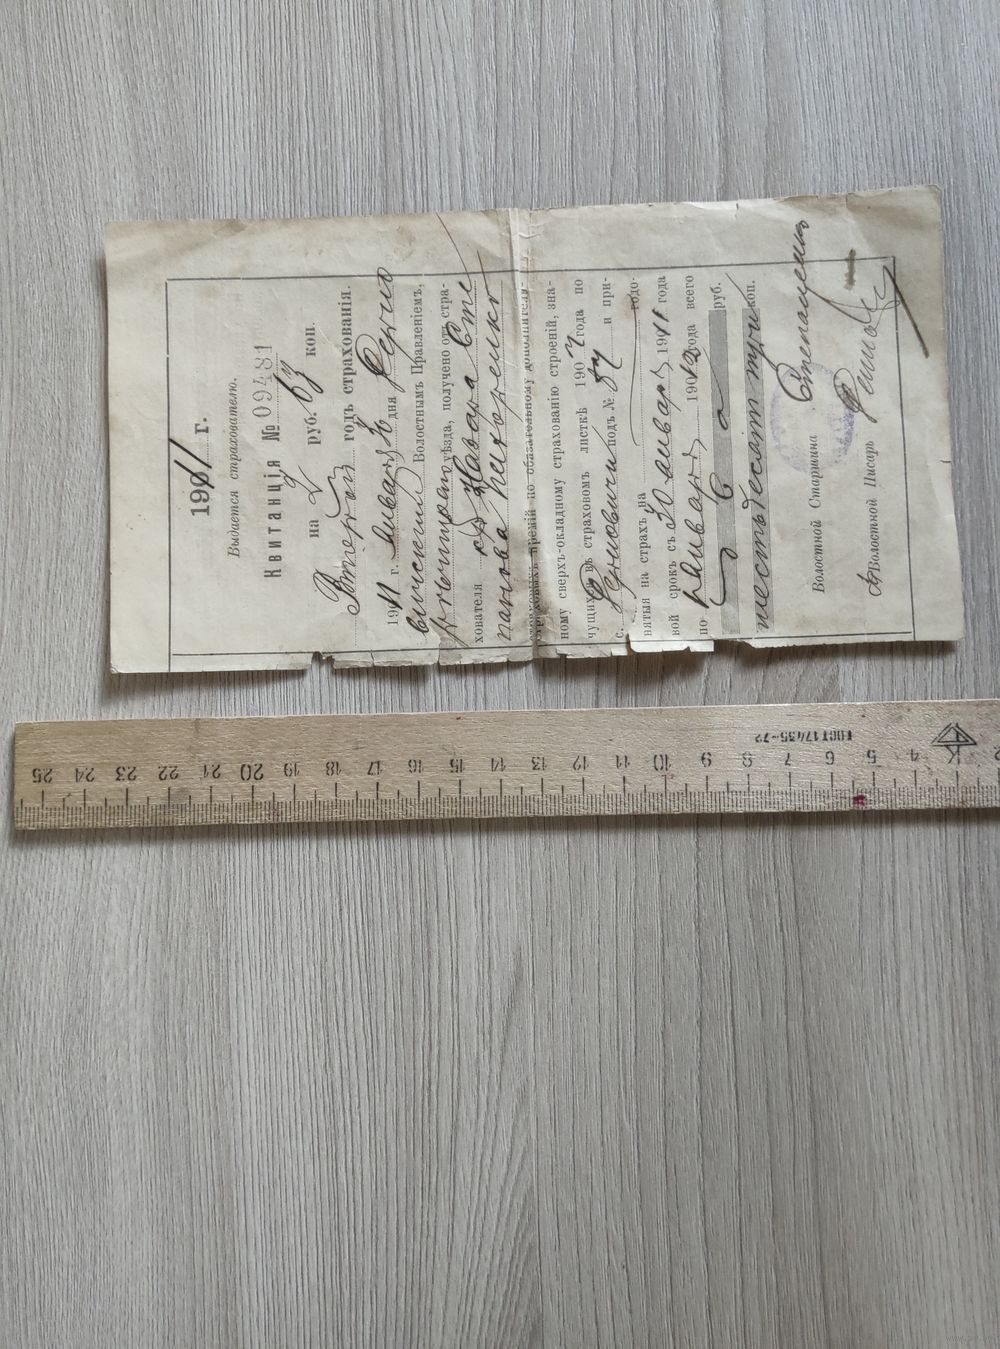 1911 г.
Выдается страхователю.
Квитанція № 09481
на 2 руб. 63 коп.
Второй годъ страхованія.
1911 г. Января 30 дня
Волостнымъ Правленіемъ,
уѣзда, получено отъ стра-
хователя Назара Сте
панова
страховыхъ премій по обязательному дополнитель-
ному сверхъ-окладному страхованію строеній, зна-
чущихся въ страховомъ листкѣ 1907 года по
с. подъ № 87 и при-
нятыя на страхъ на годо-
вой срокъ съ 30 Января 1911 года
по Января 1912 года всего
руб.
шестьдесятъ три коп.
Волостной Старшина
Волостной Писарь
25 24 23 22 21 20 19 18 17 16 15 14 13 12 11 10 9 8 7 6 5 4 2
ГОСТ 17435-72